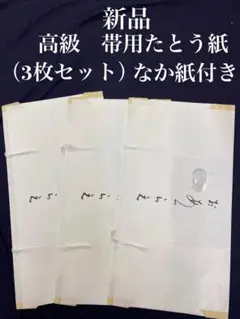 新品
高級　帯用たとう紙
（3枚セット）なか紙付き
おあつらえ